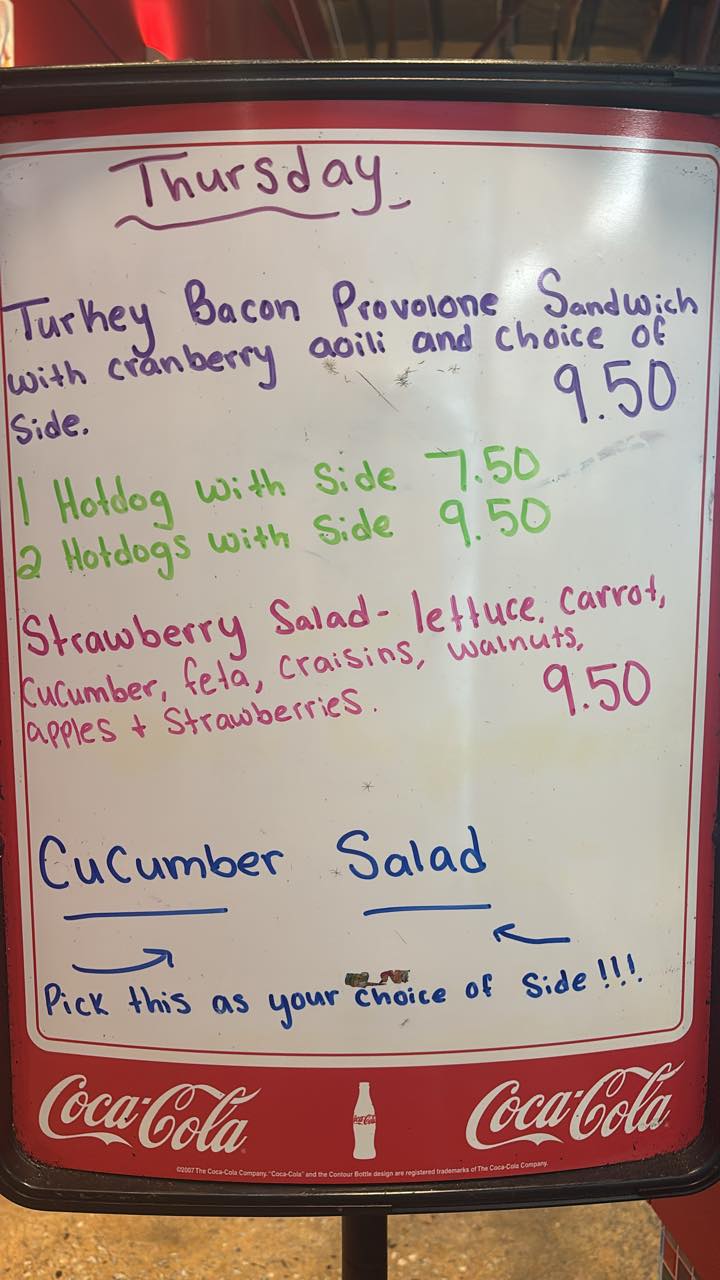 Thursday
Turkey Bacon Provolone Sandwich
with cranberry aoili and choice of
Side. 9.50
1 Hotdog with Side 7.50
2 Hotdogs with Side 9.50
Strawberry Salad- lettuce, carrot,
cucumber, feta, craisins, walnuts,
apples + Strawberries. 9.50
Cucumber Salad
Pick this as your choice of side!!!
Coca-Cola Coca-Cola Coca-Cola
©2007 The Coca-Cola Company. "Coca-Cola" and the Contour Bottle design are registered trademarks of The Coca-Cola Company.